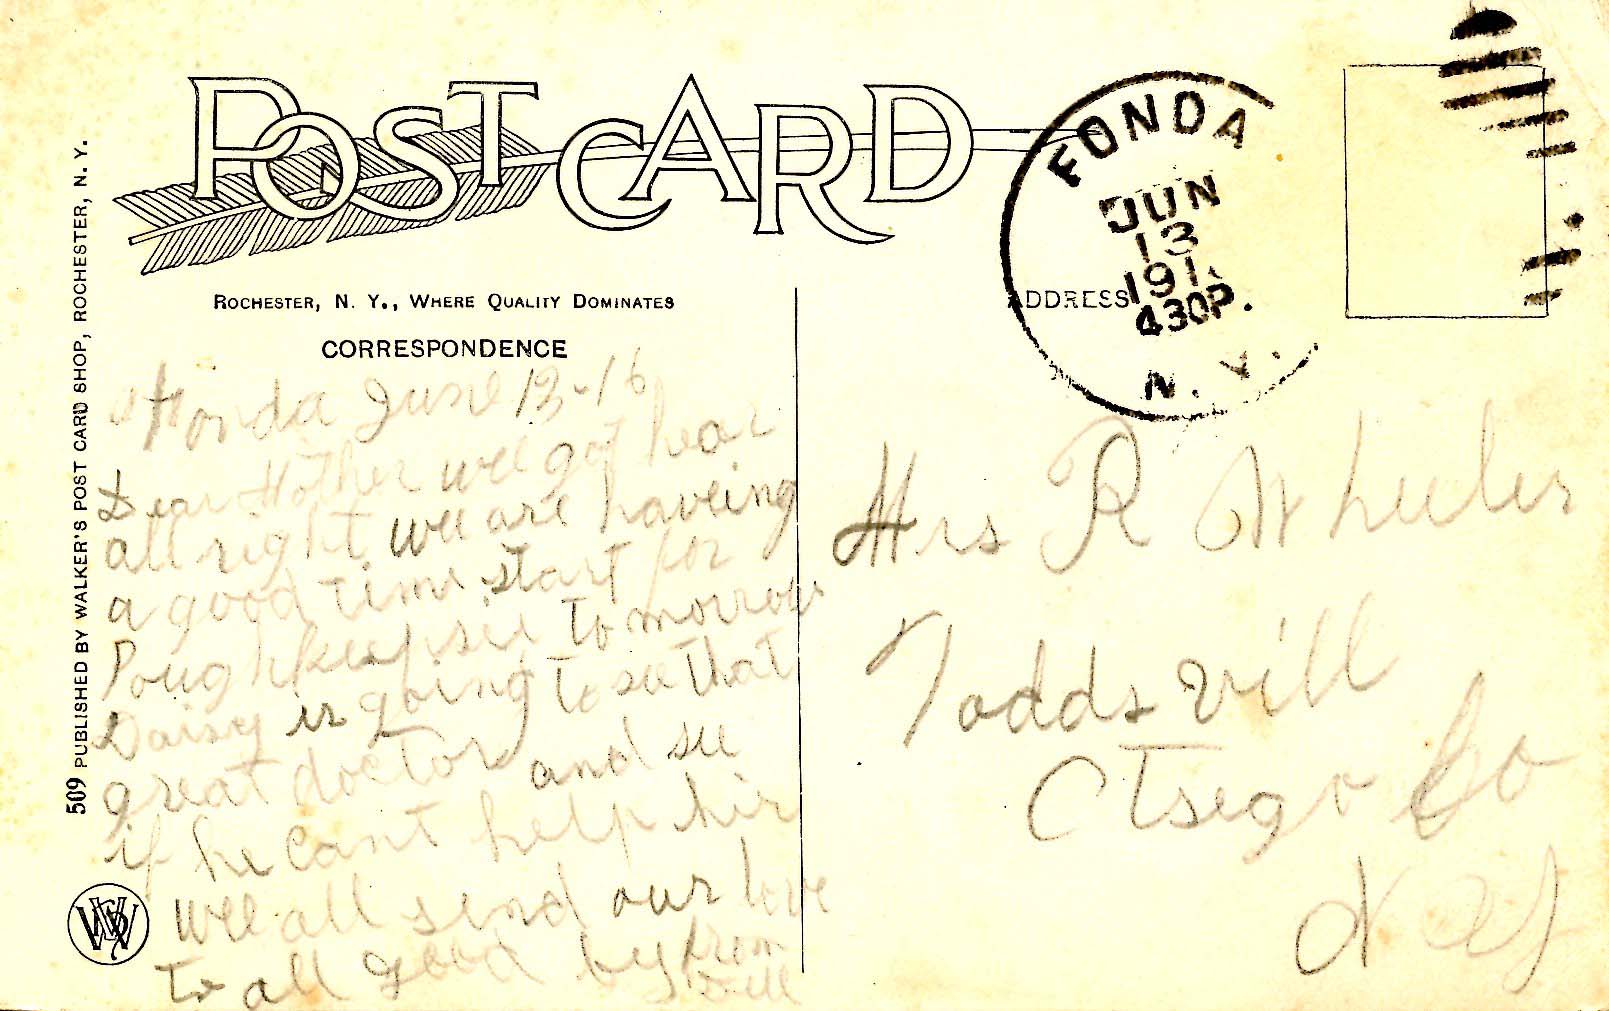 POST CARD
ROCHESTER, N. Y., WHERE QUALITY DOMINATES
CORRESPONDENCE
ADDRESS
FONDA
JUN
13
191
430P.
N. Y.
509 PUBLISHED BY WALKER'S POST CARD SHOP, ROCHESTER, N. Y.
Fonda June 13-16
Dear Mother wee got hear
all right wee are haveing
a good time start for
Poughkeepsie to morrow
Daisy is going to see that
great doctor and see
if he cant help hir
wee all send our love
to all good by from
Will
Mrs R Wheeler
Toddsvill
Otsego Co
N Y